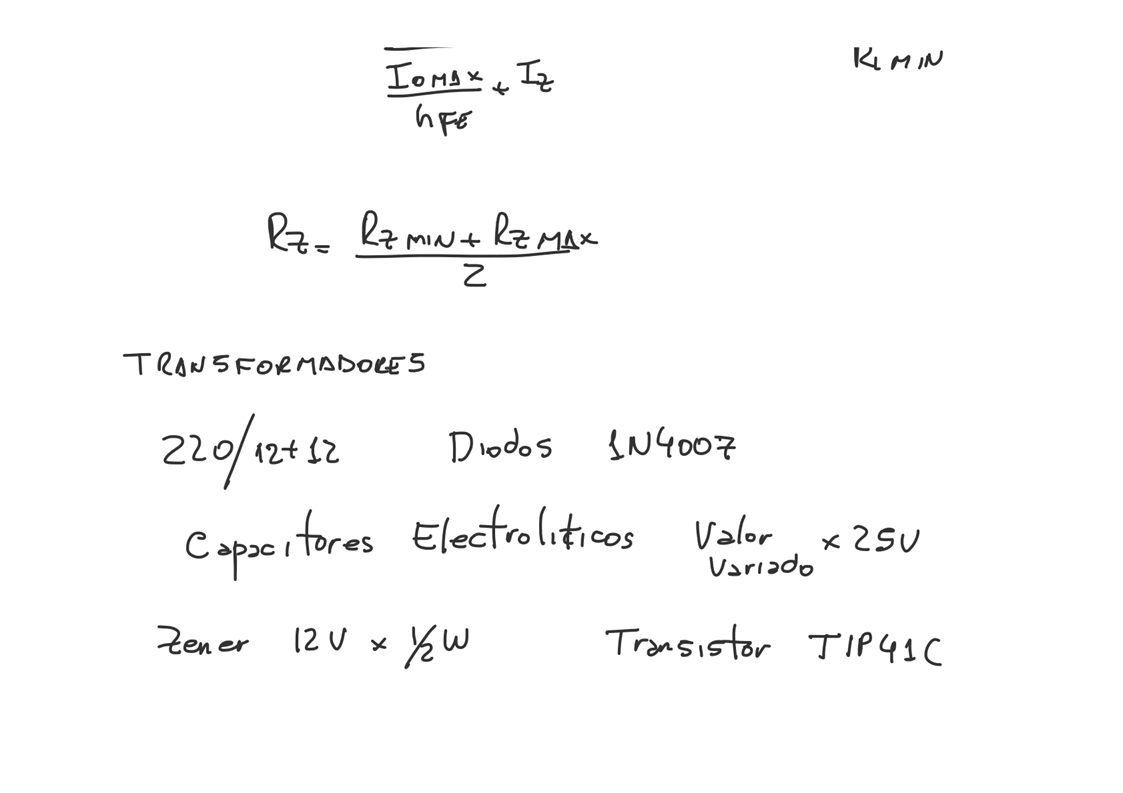 I0MAX + Iz RL MIN
hFE
Rz = Rz MIN + Rz MAX
2
TRANSFORMADORES
220/12+12 Diodos 1N4007
Capacitores Electroliticos Valor x 25V
Variado
Zener 12V x 1/2W Transistor TIP41C